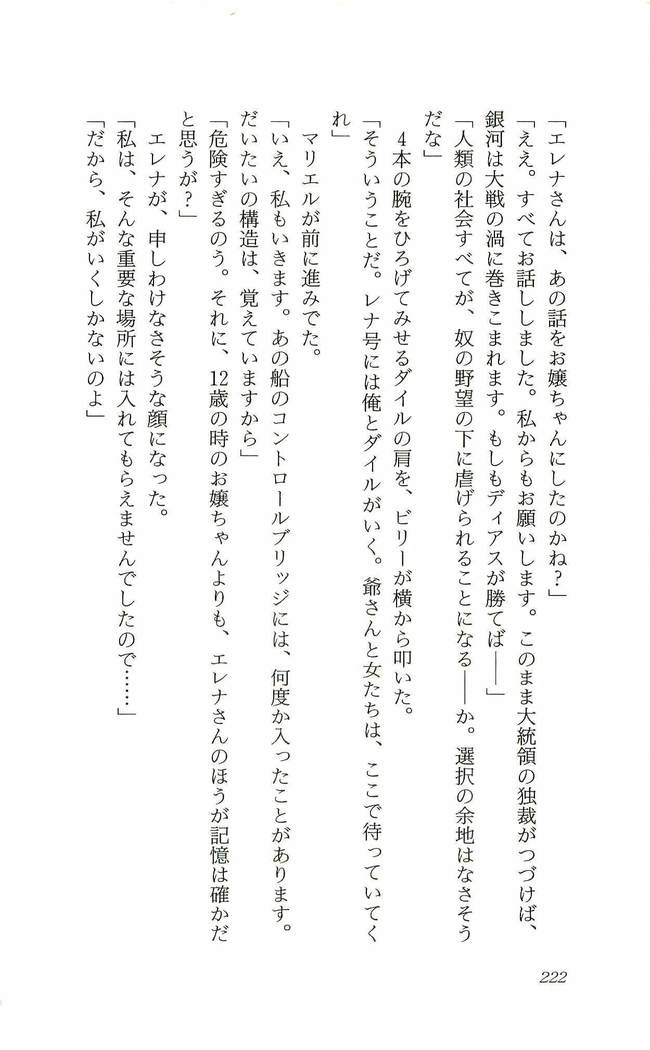 「エレナさんは、あの話をお嬢ちゃんにしたのかね?」
「ええ。すべてお話ししました。私からもお願いします。このまま大統領の独裁がつづけば、
銀河は大戦の渦に巻きこまれます。もしもディアスが勝てば――」
「人類の社会すべてが、奴の野望の下に虐げられることになる――か。選択の余地はなさそう
だな」
4本の腕をひろげてみせるダイルの肩を、ビリーが横から叩いた。
「そういうことだ。レナ号には俺とダイルがいく。爺さんと女たちは、ここで待っていてく
れ」
マリエルが前に進みでた。
「いえ、私もいきます。あの船のコントロールブリッジには、何度か入ったことがあります。
だいたいの構造は、覚えていますから」
「危険すぎるのう。それに、12歳の時のお嬢ちゃんよりも、エレナさんのほうが記憶は確かだ
と思うが?」
エレナが、申しわけなさそうな顔になった。
「私は、そんな重要な場所には入れてもらえませんでしたので……」
「だから、私がいくしかないのよ」
222